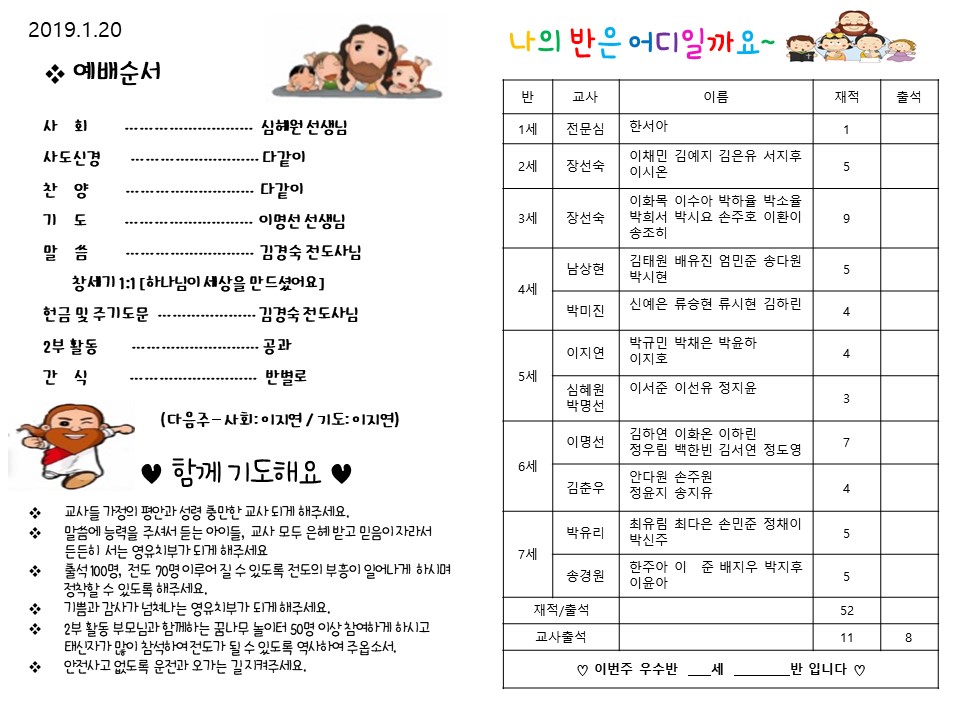 2019.1.20
❖ 예배순서
사 회 ---------------------------- 심혜원 선생님
사도신경 ---------------------------- 다같이
찬 양 ---------------------------- 다같이
기 도 ---------------------------- 이명선 선생님
말 씀 ---------------------------- 김경숙 전도사님
창세기 1:1 [하나님이 세상을 만드셨어요]
헌금 및 주기도문 --------------------- 김경숙 전도사님
2부 활동 ---------------------------- 공과
간 식 ---------------------------- 반별로
(다음주 – 사회: 이지연 / 기도: 이지연)
♥ 함께 기도해요 ♥
❖ 교사들 가정의 평안과 성령 충만한 교사 되게 해주세요.
❖ 말씀에 능력을 주셔서 듣는 아이들, 교사 모두 은혜 받고 믿음이 자라서
든든히 서는 영유치부가 되게 해주세요
❖ 출석 100명, 전도 70명 이루어 질 수 있도록 전도의 부흥이 일어나게 하시며
정착할 수 있도록 해주세요.
❖ 기쁨과 감사가 넘쳐나는 영유치부가 되게 해주세요.
❖ 2부 활동 부모님과 함께하는 꿈나무 놀이터 50명 이상 참여하게 하시고
태신자가 많이 참석하여 전도가 될 수 있도록 역사하여 주옵소서.
❖ 안전사고 없도록 운전과 오가는 길 지켜주세요.
나의 반은 어디일까요~
반 교사 이름 재적 출석
1세 전문심 한서아 1
2세 장선숙 이채민 김예지 김은유 서지후
이시온 5
3세 장선숙 이화목 이수아 박하율 박소율
박희서 박시요 손주호 이환이
송조히 9
4세 남상현 김태원 배유진 엄민준 송다원
박시현 5
박미진 신예은 류승현 류시현 김하린 4
5세 이지연 박규민 박채은 박윤하
이지호 4
심혜원
박명선 이서준 이선유 정지윤 3
6세 이명선 김하연 이화온 이하린
정우림 백한빈 김서연 정도영 7
김춘우 안다원 손주원
정윤지 송지유 4
7세 박유리 최유림 최다은 손민준 정채이
박신주 5
송경원 한주아 이 준 배지우 박지후
이윤아 5
재적/출석 52
교사출석 11 8
♡ 이번주 우수반 ___세 ________반 입니다 ♡